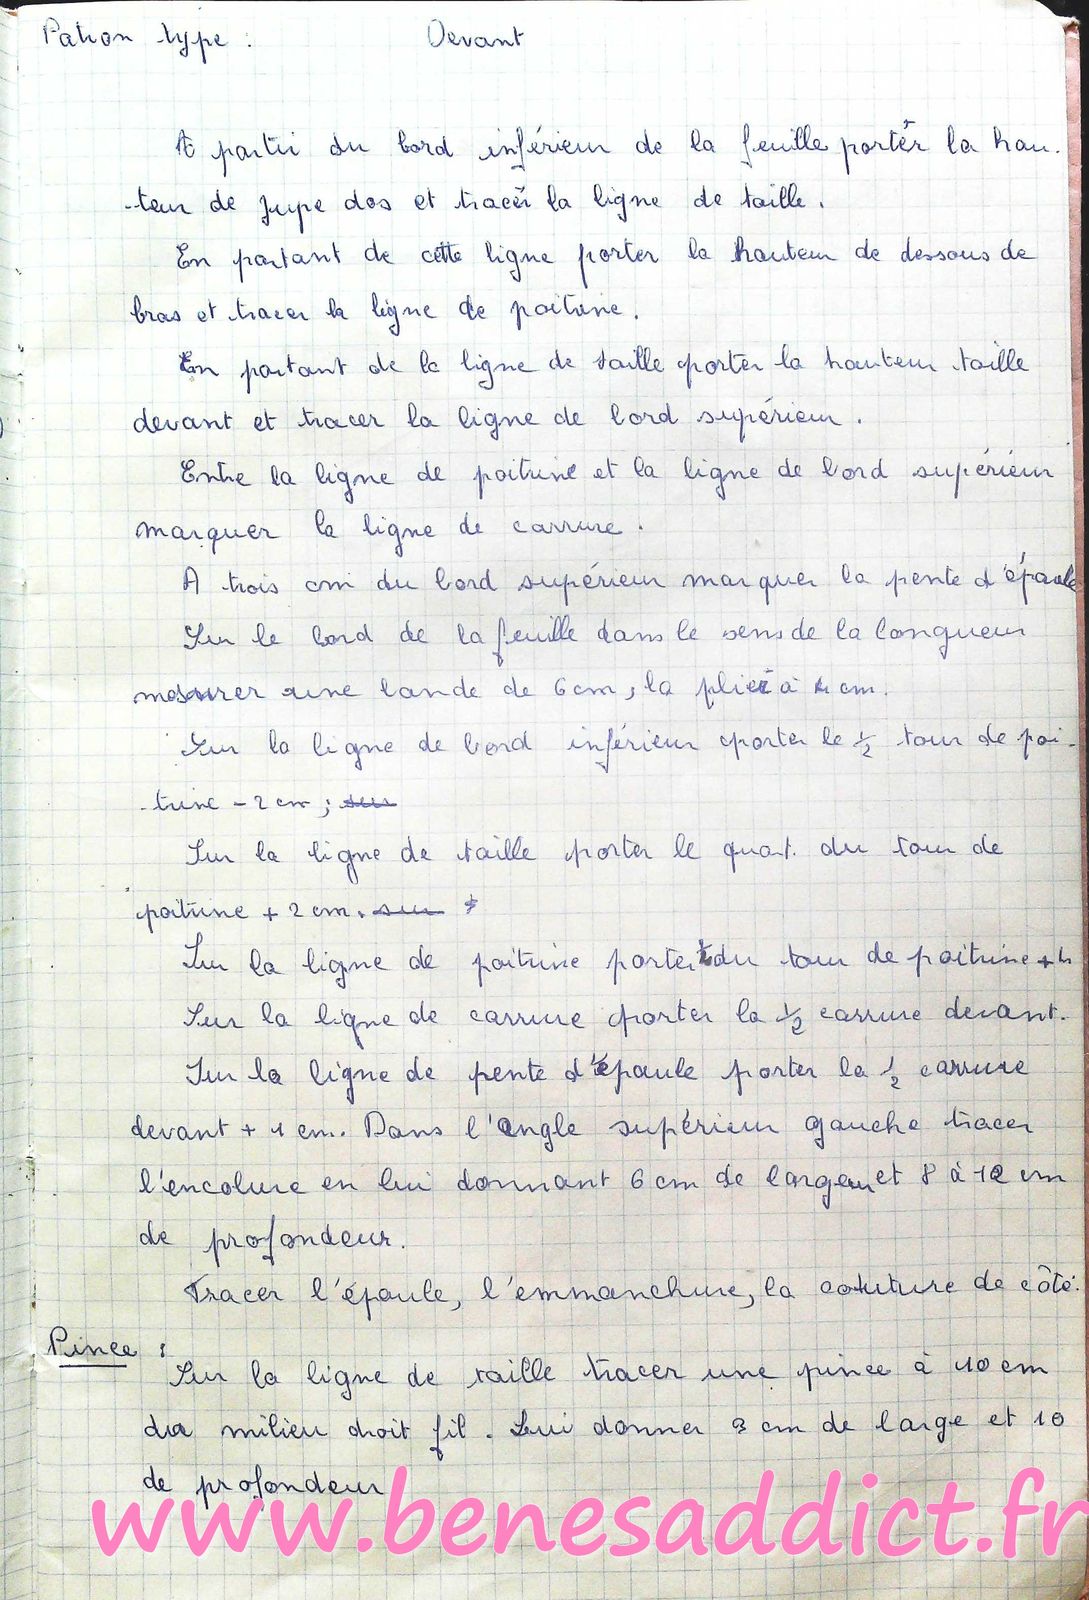 Patron type : Devant
A partir du bord inférieur de la feuille porter la hau-
-teur de jupe dos et tracer la ligne de taille.
En partant de cette ligne porter la hauteur de dessous de
bras et tracer la ligne de poitrine.
En partant de la ligne de taille porter la hauteur taille
devant et tracer la ligne de bord supérieur.
Entre la ligne de poitrine et la ligne de bord supérieur
marquer la ligne de carrure.
A trois cm du bord supérieur marquer la pente d'épaule
Sur le bord de la feuille dans le sens de la longueur
mesurer une bande de 6 cm, la plier à cm.
Sur la ligne de bord inférieur porter le 1/2 tour de poi-
-trine - 2 cm ; sur
Sur la ligne de taille porter le quart du tour de
poitrine + 2 cm. sur
Sur la ligne de poitrine porter du tour de poitrine +
Sur la ligne de carrure porter la 1/2 carrure devant.
Sur la ligne de pente d'épaule porter la 1/2 carrure
devant + 1 cm. Dans l'angle supérieur gauche tracer
l'encolure en lui donnant 6 cm de largeur et 8 à 12 cm
de profondeur.
Tracer l'épaule, l'emmanchure, la couture de côté.
Pince :
Sur la ligne de taille tracer une pince à 10 cm
du milieu droit fil. Lui donner 3 cm de large et 10
de profondeur
www.benesaddict.fr